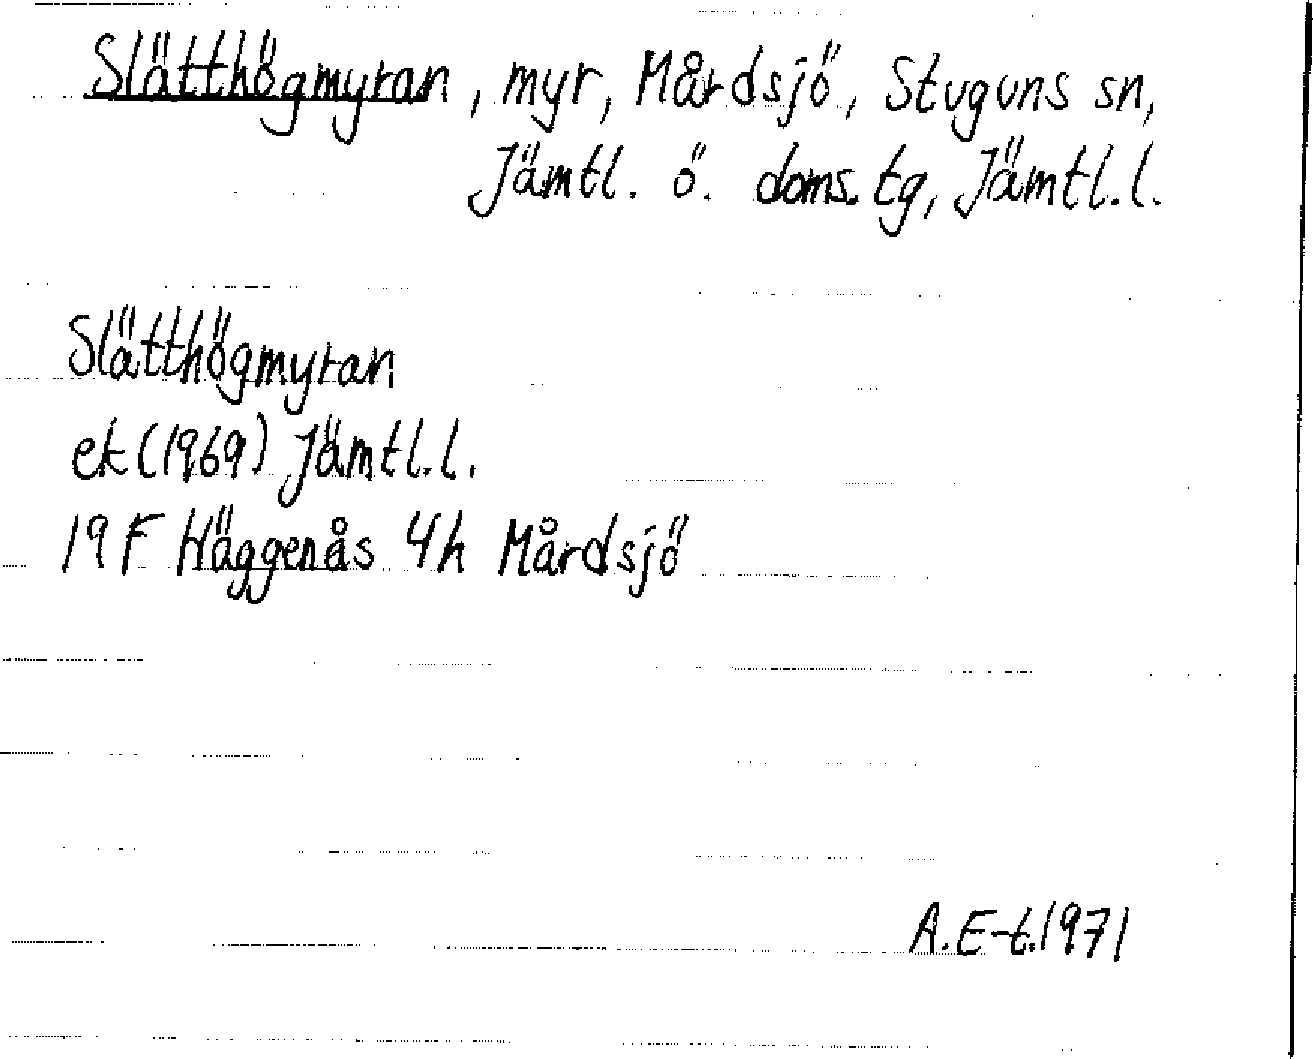 Slätthögmyran, myr, Mårdsjö, Stuguns sn,
Jämtl. ö. doms. tg, Jämtl.l.
Slätthögmyran
ek (1969) Jämtl.l.
19 F Häggenås 4h Mårdsjö
A.E-t.1971